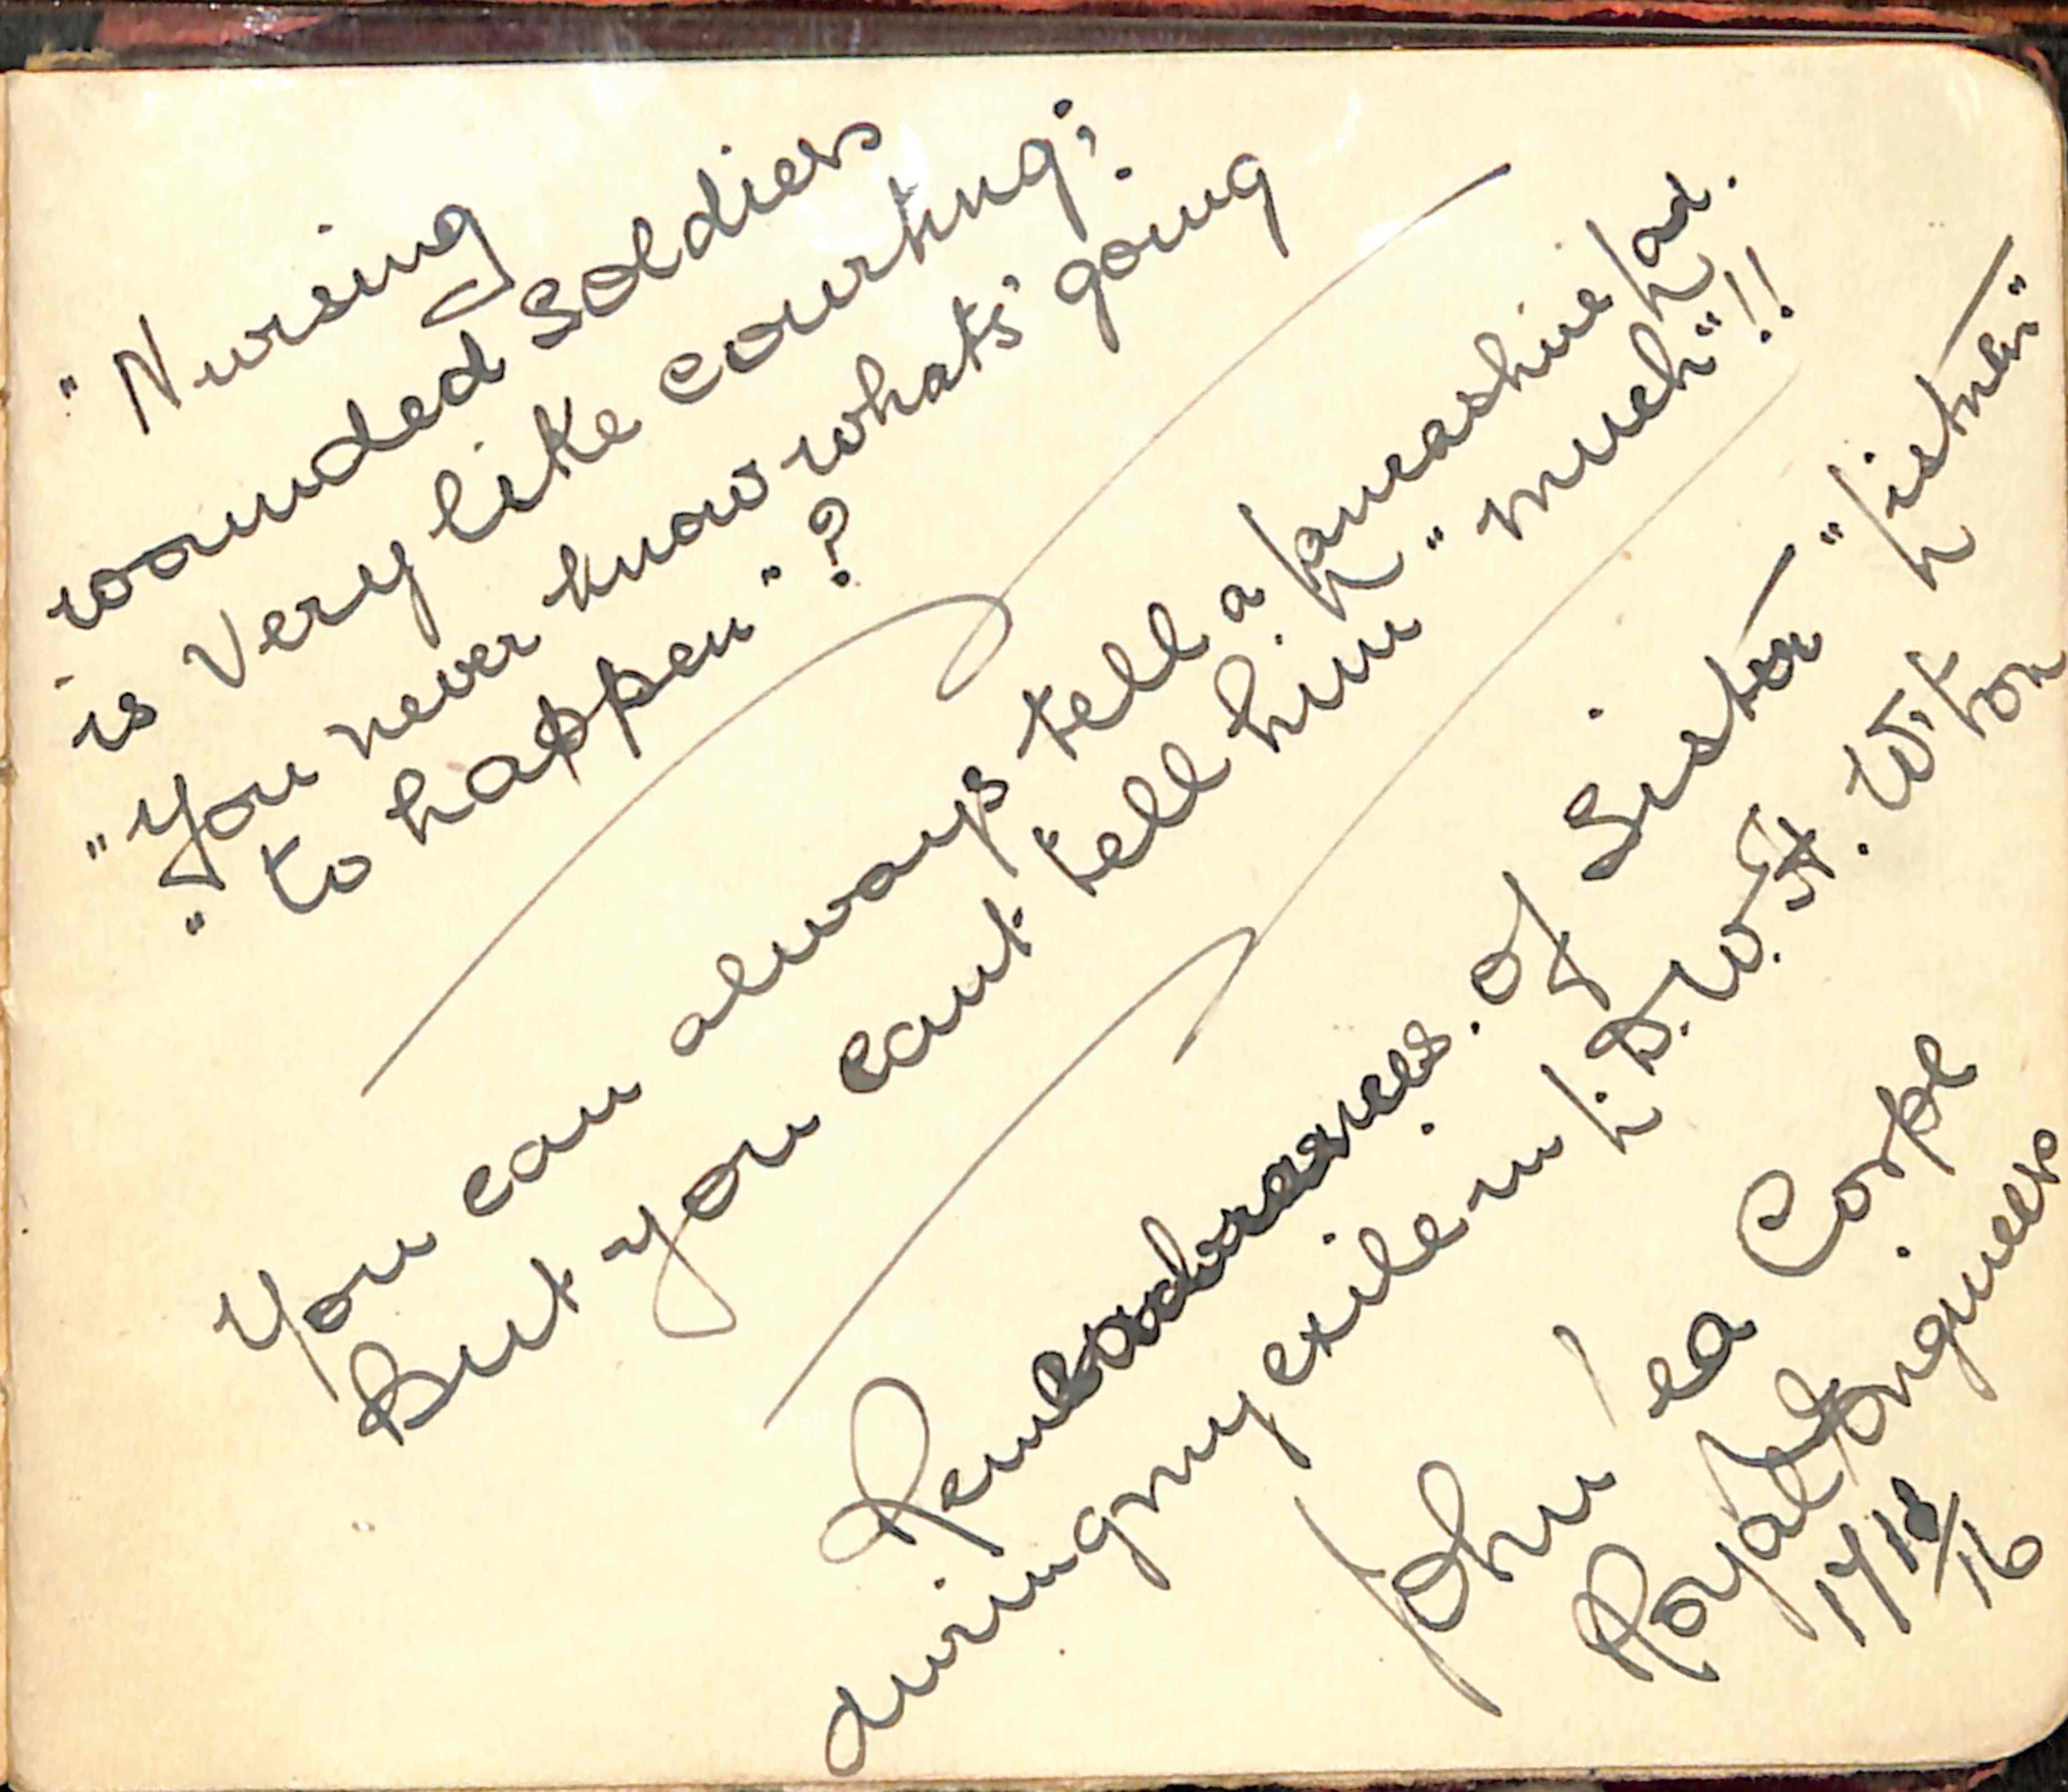 "Nursing
wounded soldiers
is very like courting;
"You never know whats' going
" to happen"?
You can always tell a Lancashire Lad.
But you cant tell him "much"!!
of Sister "Listner"
during my exile in L.D.W.H. Wil
ton
John Lea Corpl
Royal Engineers
17 10/16